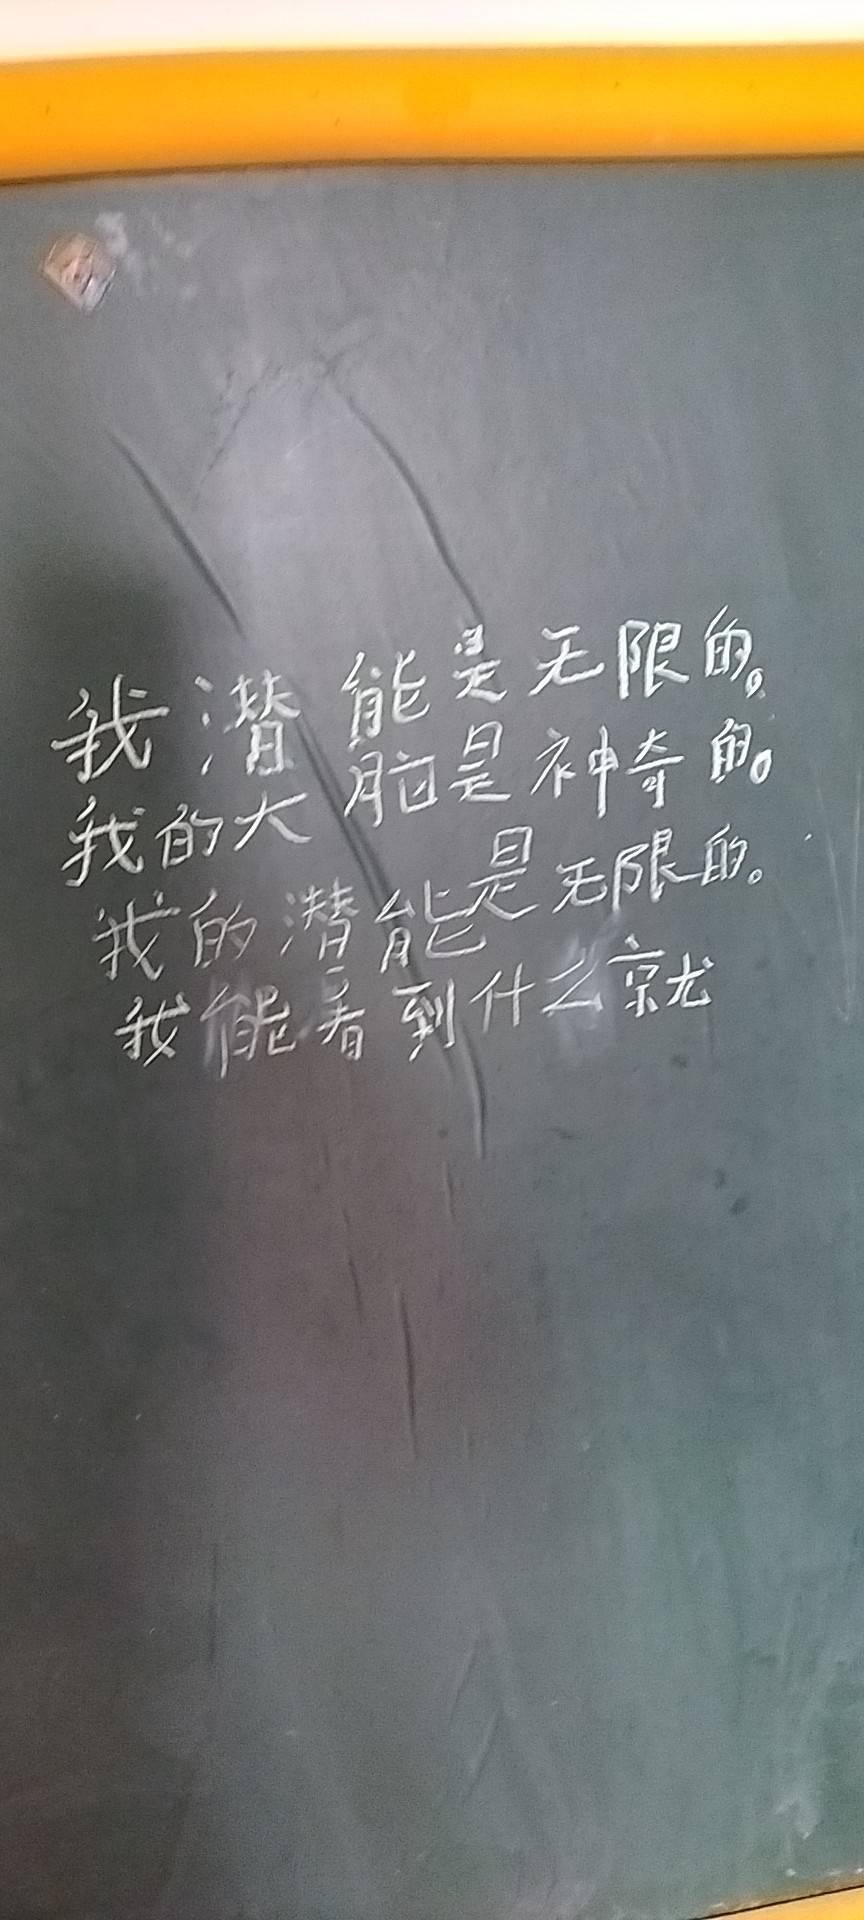 我潜能是无限的。
我的大脑是神奇的。
我的潜能是无限的。
我能看到什么就